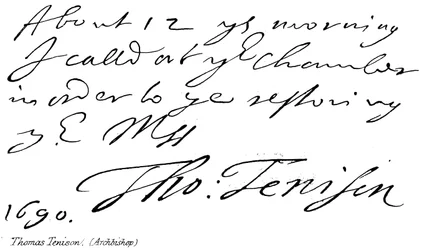 About 12 ys morning
I calld at ye Chamber
in order to ye restoring
y.e Mss
Tho: Tenison
1690.
Thomas Tenison. (Archbishop)